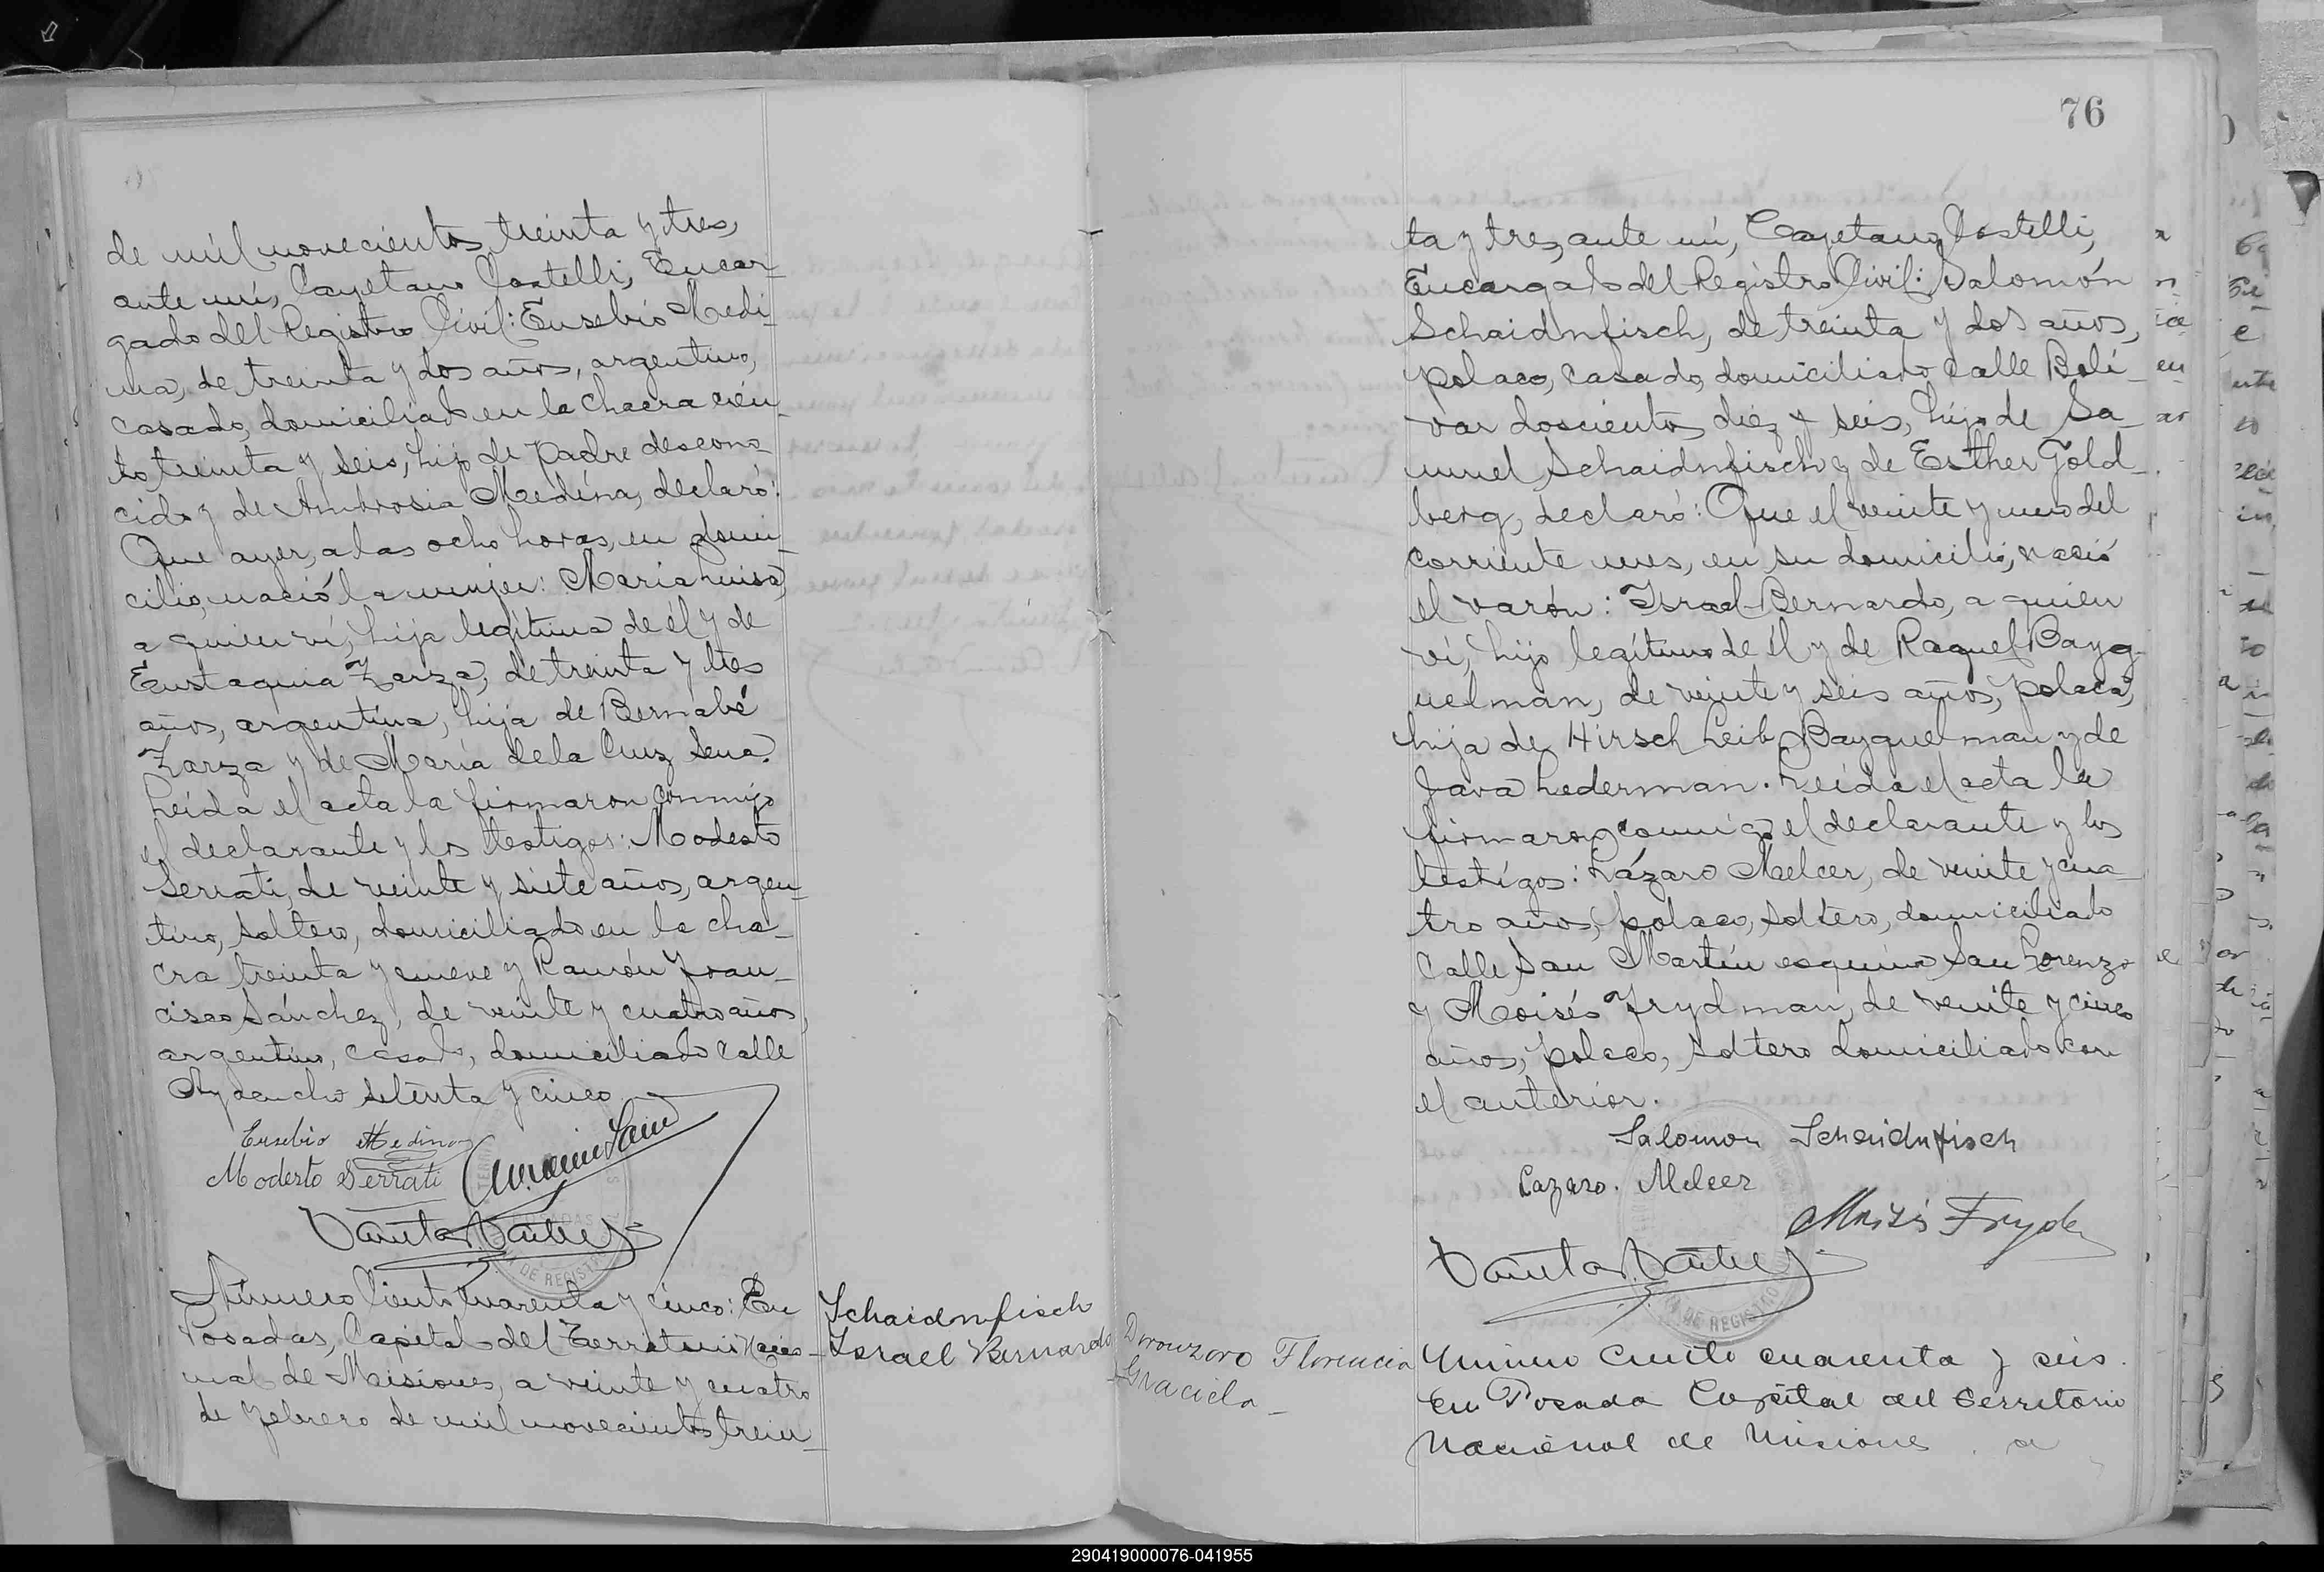 de mil novecientos treinta y tres,
ante mí, Cayetano Castelli, Encar-
gado del Registro Civil: Eusebio Medi-
na, de treinta y dos años, argentino,
casado, domiciliado en la chacra cien-
to treinta y seis, hijo de padre descono-
cido y de Ambrosia Medina, declaró:
Que ayer, a las ocho horas, en domi-
cilio, nació la mujer: María Luisa,
a quien ví, hija legítima de él y de
Eustaquia Zarza, de treinta y tres
años, argentina, hija de Bernabé
Zarza y de María de la Cruz Sena.
Leída el acta la firmaron conmigo
el declarante y los testigos: Modesto
Serrati, de veinte y siete años, argen-
tino, soltero, domiciliado en la cha-
cra treinta y nueve y Ramón Fran-
cisco Sánchez, de veinte y cuatro años,
argentino, casado, domiciliado calle
Ayacucho setenta y cinco.
Eusebio Medina
Modesto Serrati
Número Ciento cuarenta y cinco: En
Posadas, Capital del Territorio Nacio-
nal de Misiones, a veinte y cuatro
de febrero de mil novecientos trein-
Schaidnfisch
Israel Bernardo
76
ta y tres, ante mí, Cayetano Castelli,
Encargado del Registro Civil: Salomón
Schaidnfisch, de treinta y dos años,
polaco, casado, domiciliado calle Bolí-
var doscientos diez y seis, hijo de Sa-
muel Schaidnfisch y de Esther Gold-
berg, declaró: Que el veinte y uno del
corriente mes, en su domicilio, nació
el varón: Israel Bernardo, a quien
ví, hijo legítimo de él y de Raquel Bayg-
uelman, de veinte y seis años, polaca,
hija de Hirsch Leib Bayguelman y de
Java Lederman. Leída el acta la
firmaron conmigo el declarante y los
testigos: Lázaro Melcer, de veinte y cua-
tro años, polaco, soltero, domiciliado
calle San Martín esquina San Lorenzo
y Moisés Frydman, de veinte y cinco
años, polaco, soltero domiciliado con
el anterior.
Salomon Schaidnfisch
Lazaro. Melcer
Moisés Fryd
Doronzoro Florencia
Graciela_
Número Ciento cuarenta y seis.
En Posada Capital del Territorio
Nacional de Misiones a
290419000076-041955